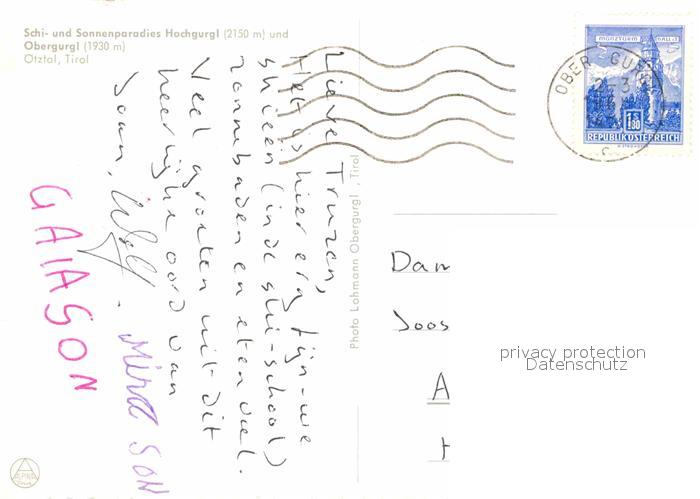 Schi- und Sonnenparadies Hochgurgl (2150 m) und
Obergurgl (1930 m)
Ötztal, Tirol
Lieve Truzen,
Het is hier erg fijn-we
skiën (in de ski-school)
zonnebaden en eten veel.
Veel groeten uit dit
heerlijke oord van
GAIASON
SON
Photo Lohmann Obergurgl, Tirol
MÜNZTURM HALL i.T.
S 1.80
REPUBLIK ÖSTERREICH
OBERGURGL
Dan
Joos
A
privacy protection
Datenschutz